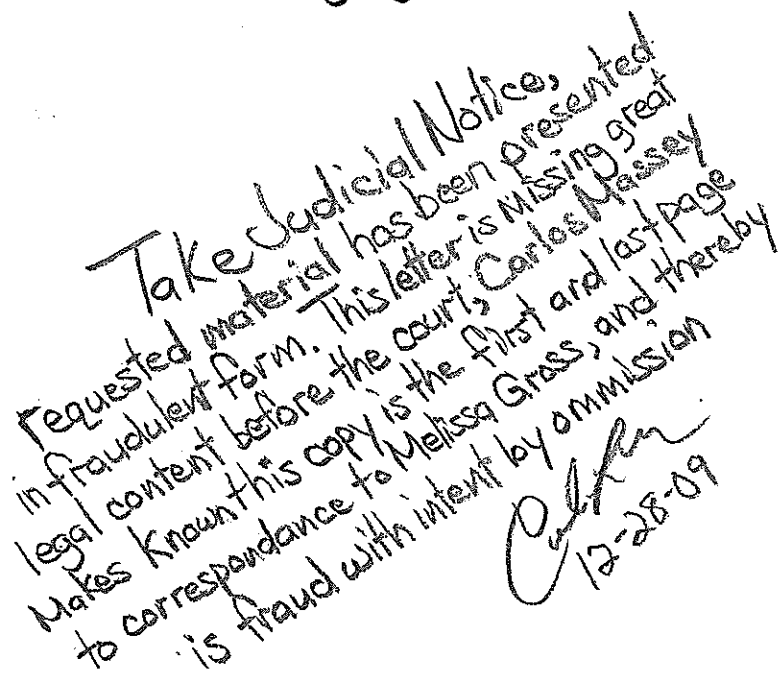 Take Judicial Notice,
requested material has been presented
in fraudulent form. This letter is Missing great
legal content before the court, Carlos Massey
Makes Known this copy is the first and last page
to correspondance to Melissa Gross, and thereby
is fraud with intent by ommission
12-28-09